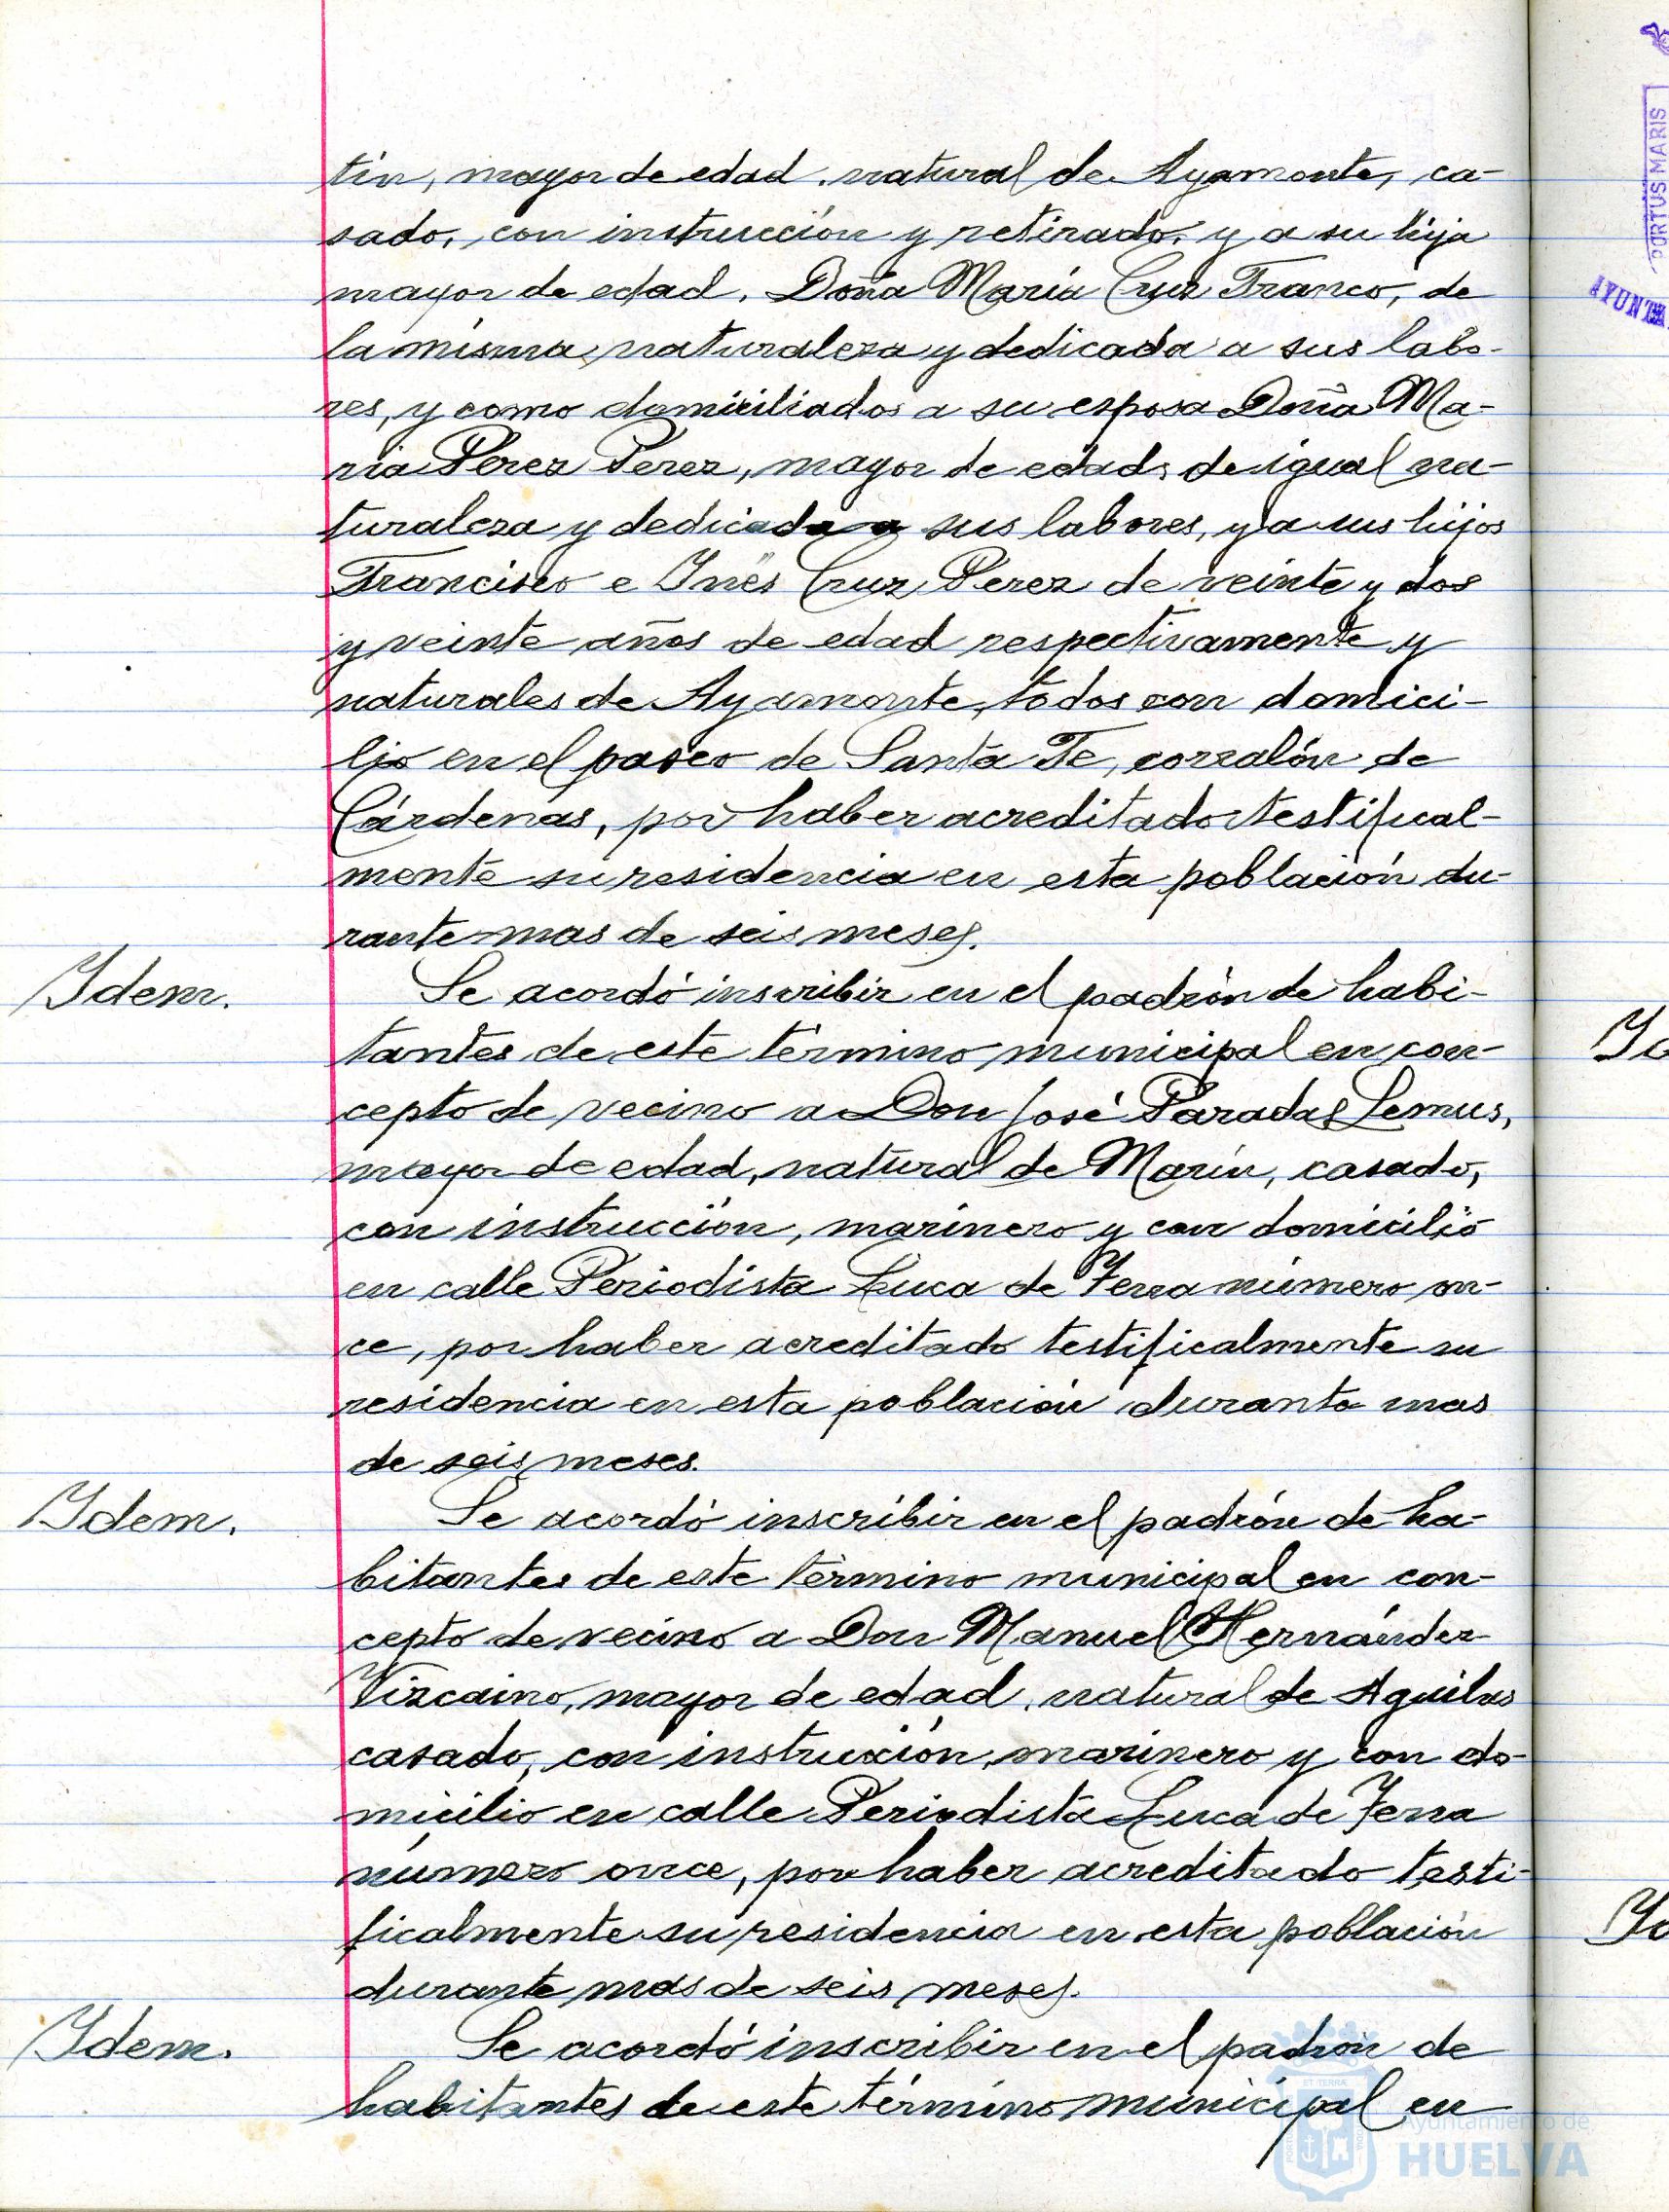 tin, mayor de edad, natural de Ayamonte, ca-
sado, con instrucción y retirado, y a su hija
mayor de edad, Doña María Cruz Franco, de
la misma naturaleza y dedicada a sus labo-
res, y como domiciliados a su esposa Doña Ma-
ria Perez Perez, mayor de edad, de igual na-
turaleza y dedicada a sus labores, y a sus hijos
Francisco e Ynés Cruz Perez de veinte y dos
y veinte años de edad respectivamente y
naturales de Ayamonte, todos con domici-
lio en el paseo de Santa Fe, corralón de
Cárdenas, por haber acreditado testifical-
mente su residencia en esta población du-
rante mas de seis meses.
Ydem. Se acordó inscribir en el padrón de habi-
tantes de este término municipal en con-
cepto de vecino a Don José Paradas Lemus,
mayor de edad, natural de Marín, casado,
con instrucción, marinero y con domicilio
en calle Periodista Luca de Tena número on-
ce, por haber acreditado testificalmente su
residencia en esta población durante mas
de seis meses.
Ydem. Se acordó inscribir en el padrón de ha-
bitantes de este término municipal en con-
cepto de vecino a Don Manuel Hernández
Vizcaino, mayor de edad, natural de Aguilas
casado, con instrucción, marinero y con do-
micilio en calle Periodista Luca de Tena
número once, por haber acreditado testi-
ficalmente su residencia en esta población
durante mas de seis meses.
Ydem. Se acordó inscribir en el padrón de
habitantes de este término municipal en
PORTUS MARIS
AYUNTA
Ayuntamiento de
HUELVA